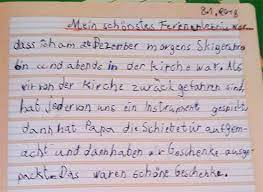 8.1.2018
Mein schönstes Ferienerlebnis war,
dass ich am 24 Dezember morgens Skigefahr
en und abends in der Kirche war. Als
wir von der Kirche zurück gefahren sind,
hat jeder von uns ein Instrument gespielt
dann hat Papa die Schiebetür aufgem-
acht und dann haben wir Geschenke ausge-
packt. Das waren schöne Geschenke.